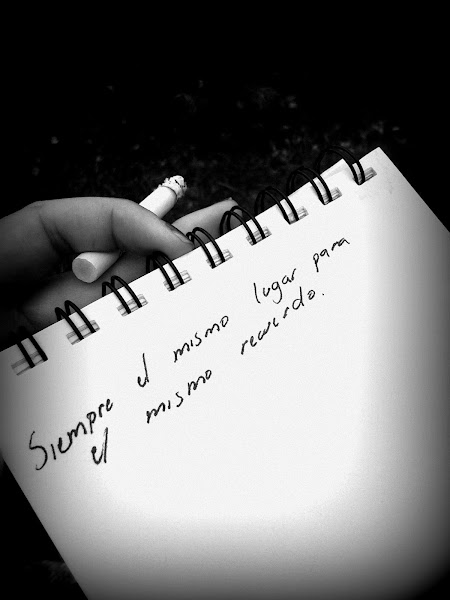 Siempre el mismo lugar para
el mismo recuerdo.